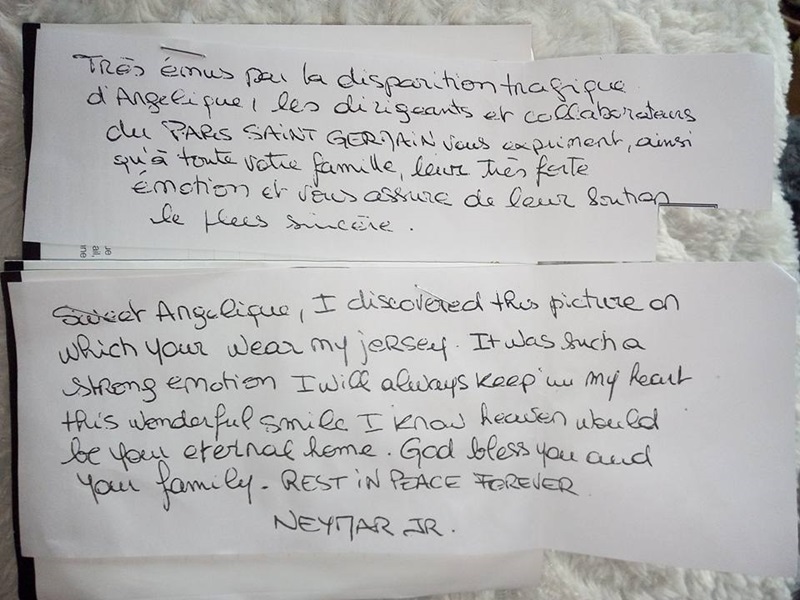 Très émus par la disparition tragique
d'Angelique, les dirigeants et collaborateurs
du PARIS SAINT GERMAIN vous expriment, ainsi
qu'à toute votre famille, leur très forte
émotion et vous assure de leur soutien
le plus sincère.
ue
ail,
ine
Sweet Angelique, I discovered this picture on
which your wear my jersey. It was such a
strong emotion I will always keep in my heart
this wonderful smile I know heaven would
be your eternal home. God bless you and
your family. REST IN PEACE FOREVER
NEYMAR JR.